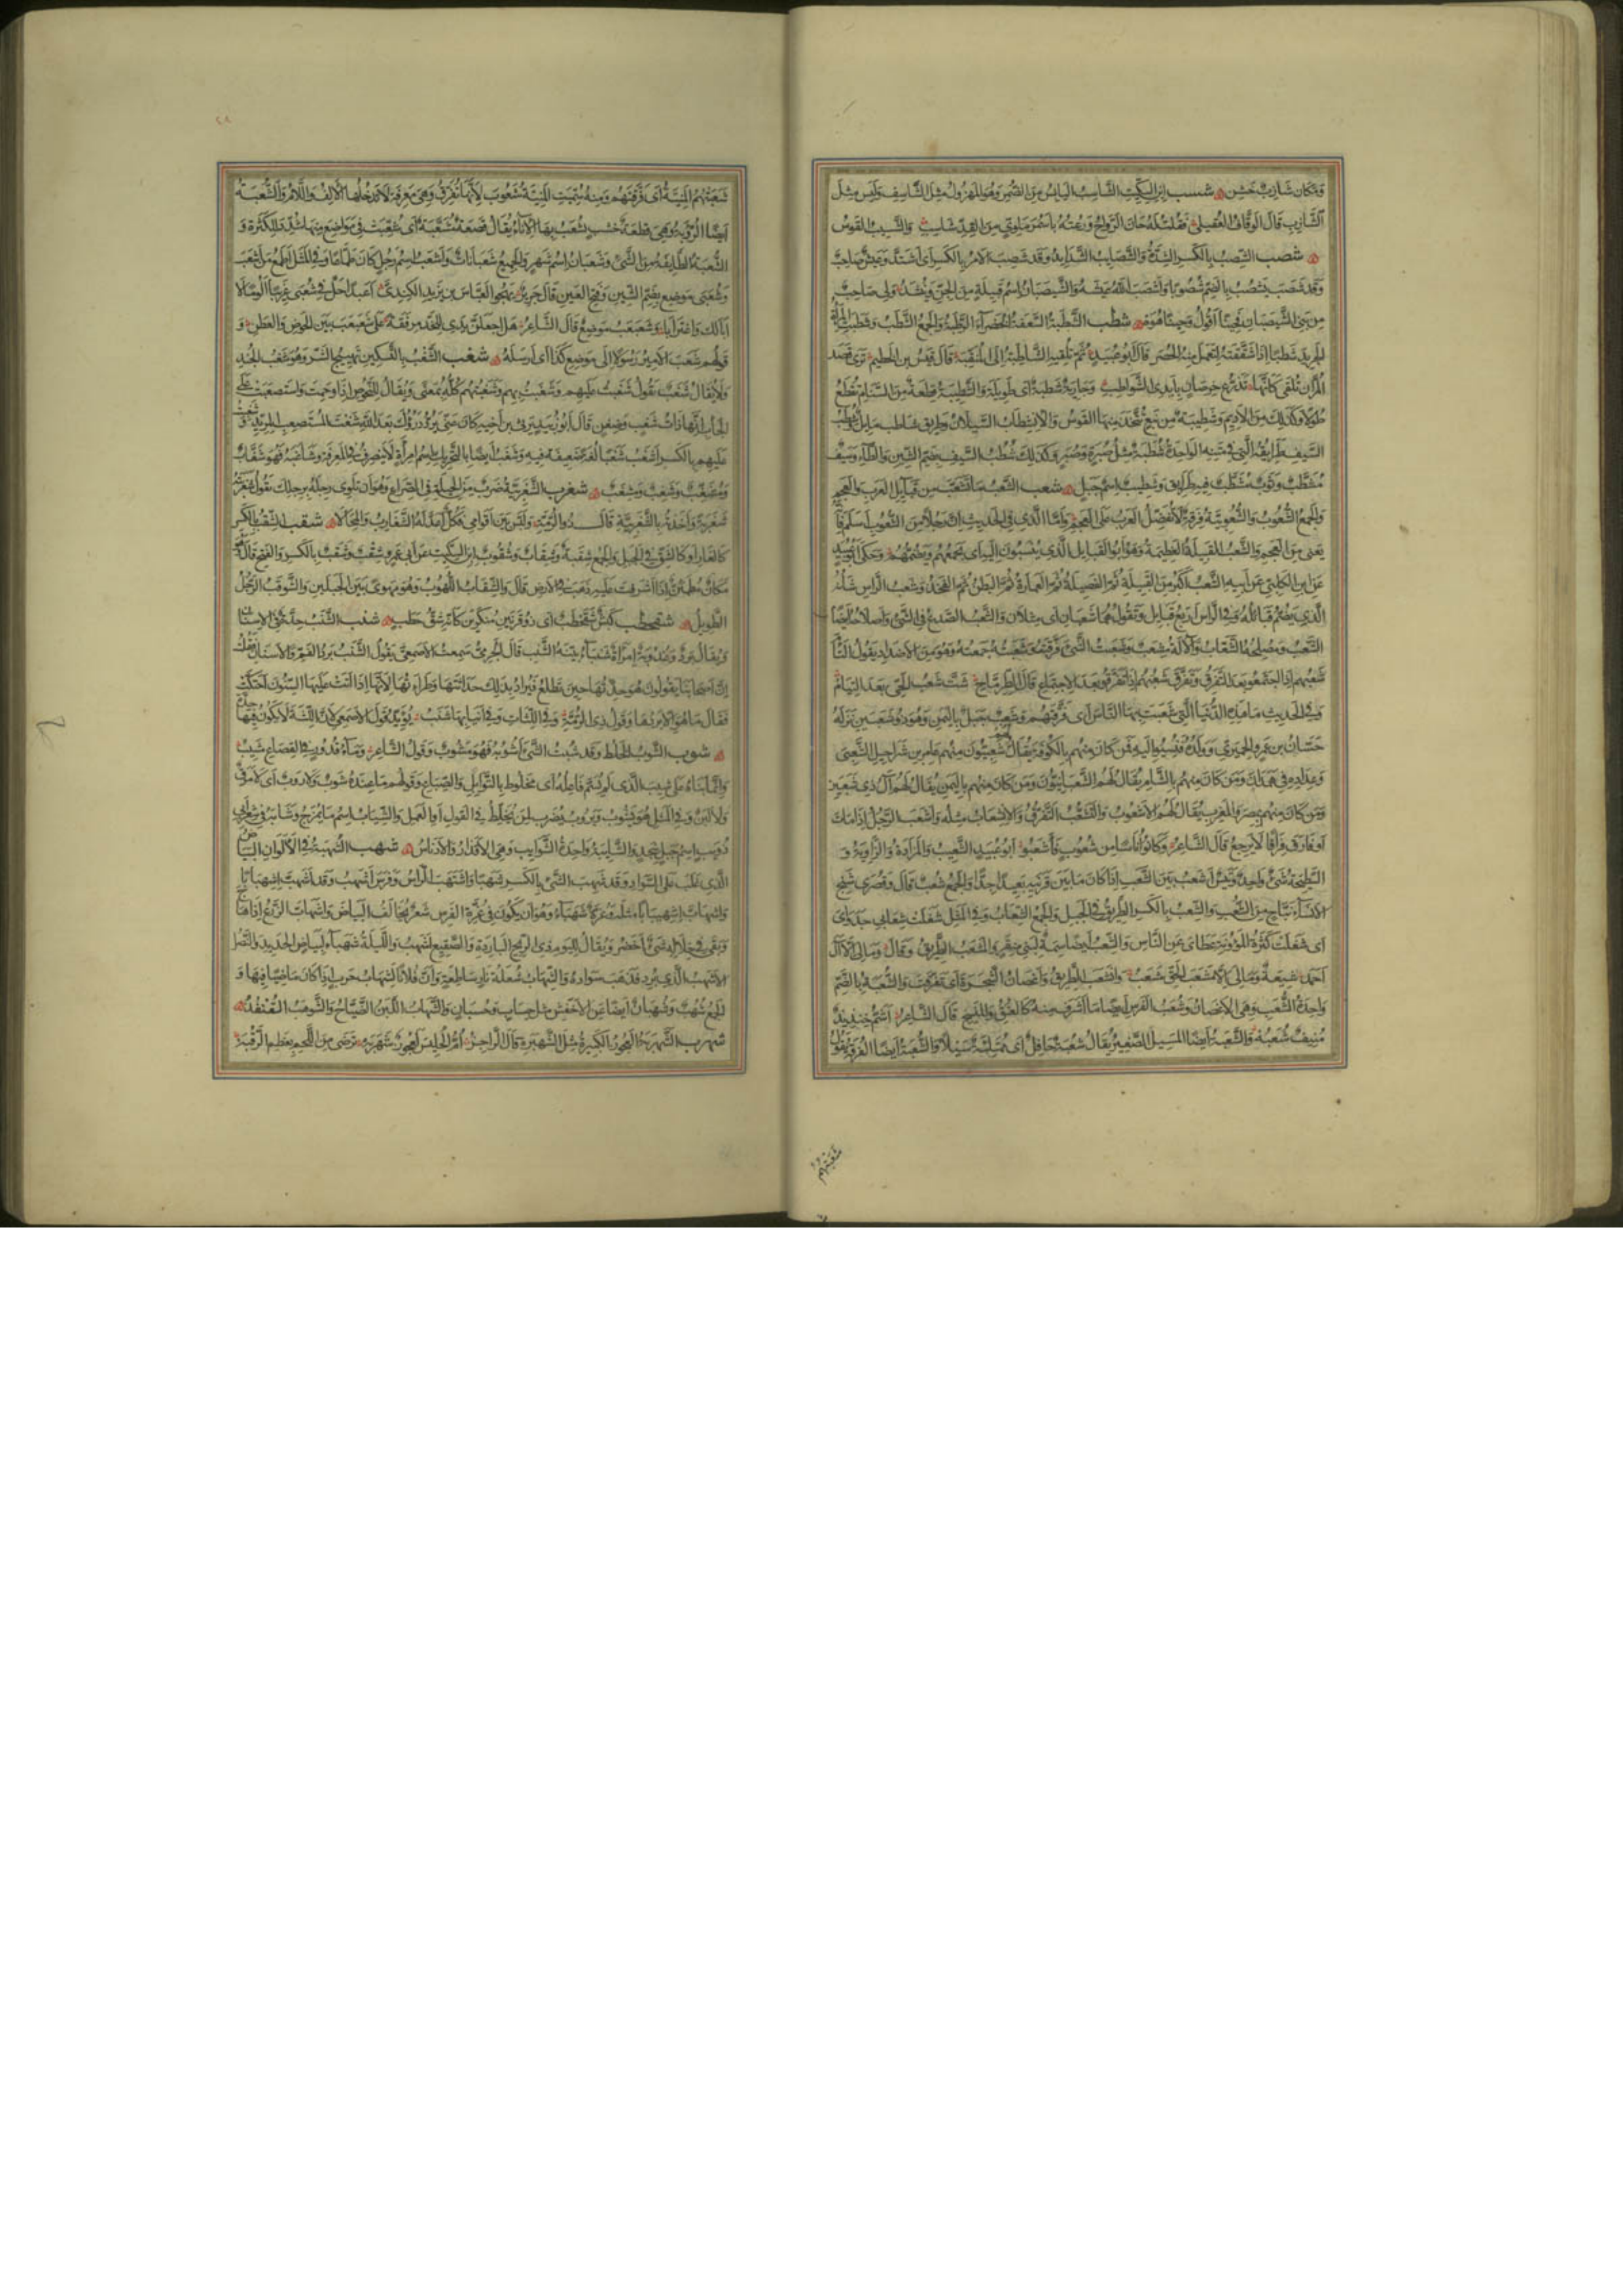 ومكان شازب خشن شسب ابن السكيت الشاسب اليابس من الضمر وهو المهزول مثل الشاسف وليس مثل
الشازب قال الوقاف العقيلي فقلت له حان الرواح ورعته باسمر ملوي من القد شاسب والشسيب القوس
شصب الشصب بالكسر الشدة والشصايب الشدايد وقد شصب الامر بالكسر اى اشتد وعيش شاصب
وقد شصب يشصب بالضم شصوبا واشصب الله عيشه والشيصبان اسم قبيلة من الجن وينشد ولي صاحب
من بني الشيصبان فحينا اقول وحينا هوه شطب الشطبة السعفة الخضراء الرطبة والجمع الشطب وشطبت المرأة
الجريد شطبا اذا شققته لتعمل منه الحصر قال ابو عبيد ثم تلقيه الشاطبة الى المنقية قال قيس بن الخطيم ترى قصد
المران تلقى كانها تذرع خرصان بايدي الشواطب وجارية شطبة اى طويلة والشطيبة قطعة من السنام تقطع
طولا وكذلك من الاديم وشطيبة من نبع تتخذ منها القوس والانشطاب السيلان وطريق شاطب مايل وشطب
السيف طرايقه التي في متنه الواحدة شطبة مثل صبرة وصبر وكذلك شطب السيف بضم الشين والطاء وسيف
مشطب وثوب مشطب فيه طرايق وشطيب اسم جبل شعب الشعب ما تشعب من قبايل العرب والعجم
والجمع الشعوب والشعوبية فرقة لا تفضل العرب على العجم واما الذي في الحديث ان رجلا من الشعوب اسلم فانه
يعني من العجم والشعب القبيلة العظيمة وهو ابو القبايل الذي ينسبون اليه اى يجمعهم ويضمهم وحكى ابو عبيد
عن ابن الكلبي عن ابيه الشعب اكبر من القبيلة ثم الفصيلة ثم العمارة ثم البطن ثم الفخذ وشعب الراس شانه
الذي يضم قبائله وفي الراس اربع قبايل وتقول هما شعبان اى مثلان والشعب الصدع في الشئ واصلاحه ايضا
الشعب ومصلحه الشعاب والآلة مشعب وشعبت الشئ فرقته وشعبته جمعته وهو من الاضداد يقول التأم
شعبهم اذا اجتمعوا بعد التفرق وتفرق شعبهم اذا تفرقوا بعد الاجتماع قال الطرماح شت شعب الحي بعد التيام
وفي الحديث ما هذه الفتيا التي شعبت بها الناس اى فرقتهم وشعب جبل باليمن وهو ذو شعبين نزله
حسان بن عمرو الحميري وولده فنسبوا اليه فمن كان منهم بالكوفة يقال شعبيون منهم عامر بن شراحيل الشعبي
وعداده في همدان ومن كان منهم بالشام يقال لهم الشعبانيون ومن كان منهم باليمن يقال لهم آل ذي شعبين
ومن كان منهم بمصر والمغرب يقال لهم الاشعوب والتشعب التفرق والانشعاب مثله واشعب الرجل اذا مات
او فارق فراقا لا يرجع قال الشاعر وكانوا اناسا من شعوب فاشعبوا ابو عبيد الشعيب والمزادة والراوية و
السطيحة شئ واحد وتيس اشعب بين الشعب اذا كان ما بين قرنيه بعيدا جدا والجمع شعب قال وقصرى شنج
الانساء نباج من الشعب والشعب بالكسر الطريق في الجبل والجمع الشعاب وفي المثل شغلت شعابي جدواى
اى شغلت كثرة المؤونة عطاى عن الناس والشعب ايضا سمة لبني منقر والمشعب الطريق وقال وما لي الا آل
احمد شيعة وما لي الا مشعب الحق مشعب وانشعب الطريق واغصان الشجرة اى تفرقت والشعبة بالضم
واحدة الشعب وهي الاغصان وشعب الفرس ايضا ما اشرف منه كالعنق والمنسج قال الشاعر اشم خنذيذ
منيف شعبه والشعبة ايضا المسيل الصغير يقال شعبة حافل اى ممتلئة سيلا والشعبة ايضا الفرقة يقول
شعبتهم
شعبتهم المنية اى فرقتهم ومنه سميت المنية شعوب لانها تفرق وهي معرفة لا تدخلها الالف واللام والشعبة
ايضا الرؤبة وهي قطعة خشب يشعب بها الاناء يقال قصعة مشعبة اى شعبت في مواضع منها شدد للكثرة و
الشعبة الطايفة من الشئ وشعبان اسم شهر والجمع شعبانات واشعب اسم رجل كان طماعا وفي المثل اطمع من اشعب
وشعبى موضع بضم الشين وفتح العين قال جرير يهجو العباس بن يزيد الكندي اعبدا حل في شعبى غريبا الؤما لا
ابا لك واغترابا وشعبعب موضع قال الشاعر هل اجعلن يدي للخد مرفقة على شعبعب بين الحوض والعطن و
قولهم شعب الامير رسولا الى موضع كذا اى ارسله شغب الشغب بالتسكين تهييج الشر وهو شغب الجند
ولا يقال شغب تقول شغبت عليهم وشغبت بهم وشغبتهم كله بمعنى ويقال للنحوص اذا وحمت واستصعبت على
الجاب انها ذات شغب وضغن قال ابو زبيد يرثي ابن اخيه كان عني يرد درؤك بعد الله شغب المستصعب المريد وشغبت
عليهم بالكسر اشغب شغبا لغة ضعيفة فيه وشغب ايضا بالتحريك اسم امراة لا ينصرف في المعرفة وشاغبه فهو شغاب
ومشغب وشغب ومشغب شغرب الشغزبية ضرب من الحيلة في الصراع وهو ان تلوى رجله برجلك تقول شغزبته
شغزبة واخذته بالشغزبية قال ذو الرمة ولبس بين اقوامي فكل اعد له الشغازب والمحالا شقب الشقب بالكسر
كالغار او كالشق في الجبل والجمع شقبة وشقاب وشقوب ابن السكيت عن ابي عمرو شقب وشقب بالكسر والفتح قال
مكان مطمئن اذا اشرفت عليه ذهب في الارض قال والشقاب اللهوب وهو مهوى بين الجبلين والشوقب الرجل
الطويل شقحطب كبش شقحطب اى ذو قرنين منكرين كانه شق حطب شنب الشنب حدة في الاسنان
ويقال برد وعذوبة وامراة شنباء بينة الشنب قال الجرمي سمعت الاصمعي يقول الشنب برد الفم والاسنان فقلت
ان اصحابنا يقولون هو حدتها حين تطلع فيراد بذلك حداثتها وطراءتها لانها اذا اتت عليها السنون احتكت
فقال ما هو الا بردها وقول ذي الرمة وفي اللثات وفي انيابها شنب يؤيد قول الاصمعي لان اللثة لا يكون فيها حدة
شوب الشوب الخلط وقد شبت الشئ اشوبه فهو مشوب وقول الشاعر وماء قدور في القصاع مشيب
وانما بناه على شيب الذي لم يسم فاعله اى مخلوط بالتوابل والصباغ وقولهم ما عنده شوب ولا روب اى لا مرق
ولا لبن وفي المثل هو يشوب ويروب يضرب لمن يخلط في القول او العمل والشياب اسم ما يمزج وشابة في شعر ابي
ذويب اسم جبل بنجد والشايبة واحدة الشوايب وهي الاقذار والادناس شهب الشهبة في الالوان البياض
الذي غلب على السواد وقد شهب الشئ بالكسر شهبا واشتهب الراس وفرس اشهب وقد اشهب اشهبابا
واشهاب اشهيبابا مثله وغرة شهباء وهو ان يكون في غرة الفرس شعر يخالف البياض واشهاب الزرع اذا هاج
وبقى في خلاله شئ اخضر ويقال لليوم ذي الريح الباردة والصقيع اشهب والليلة شهباء لبياض الحديد والنصل
الاشهب الذي برد فذهب سواده والشهاب شعلة نار ساطعة وان فلانا لشهاب حرب اذا كان ماضيا فيها و
الجمع شهب وشهبان ايضا عن الاخفش مثل حساب وحسبان والشهاب اللبن الضياح والشوهب القنفذ
شهرب الشهربة العجوز الكبيرة مثل الشهبرة قال الراجز ام الحليس لعجوز شهربه ترضى من اللحم بعظم الرقبه